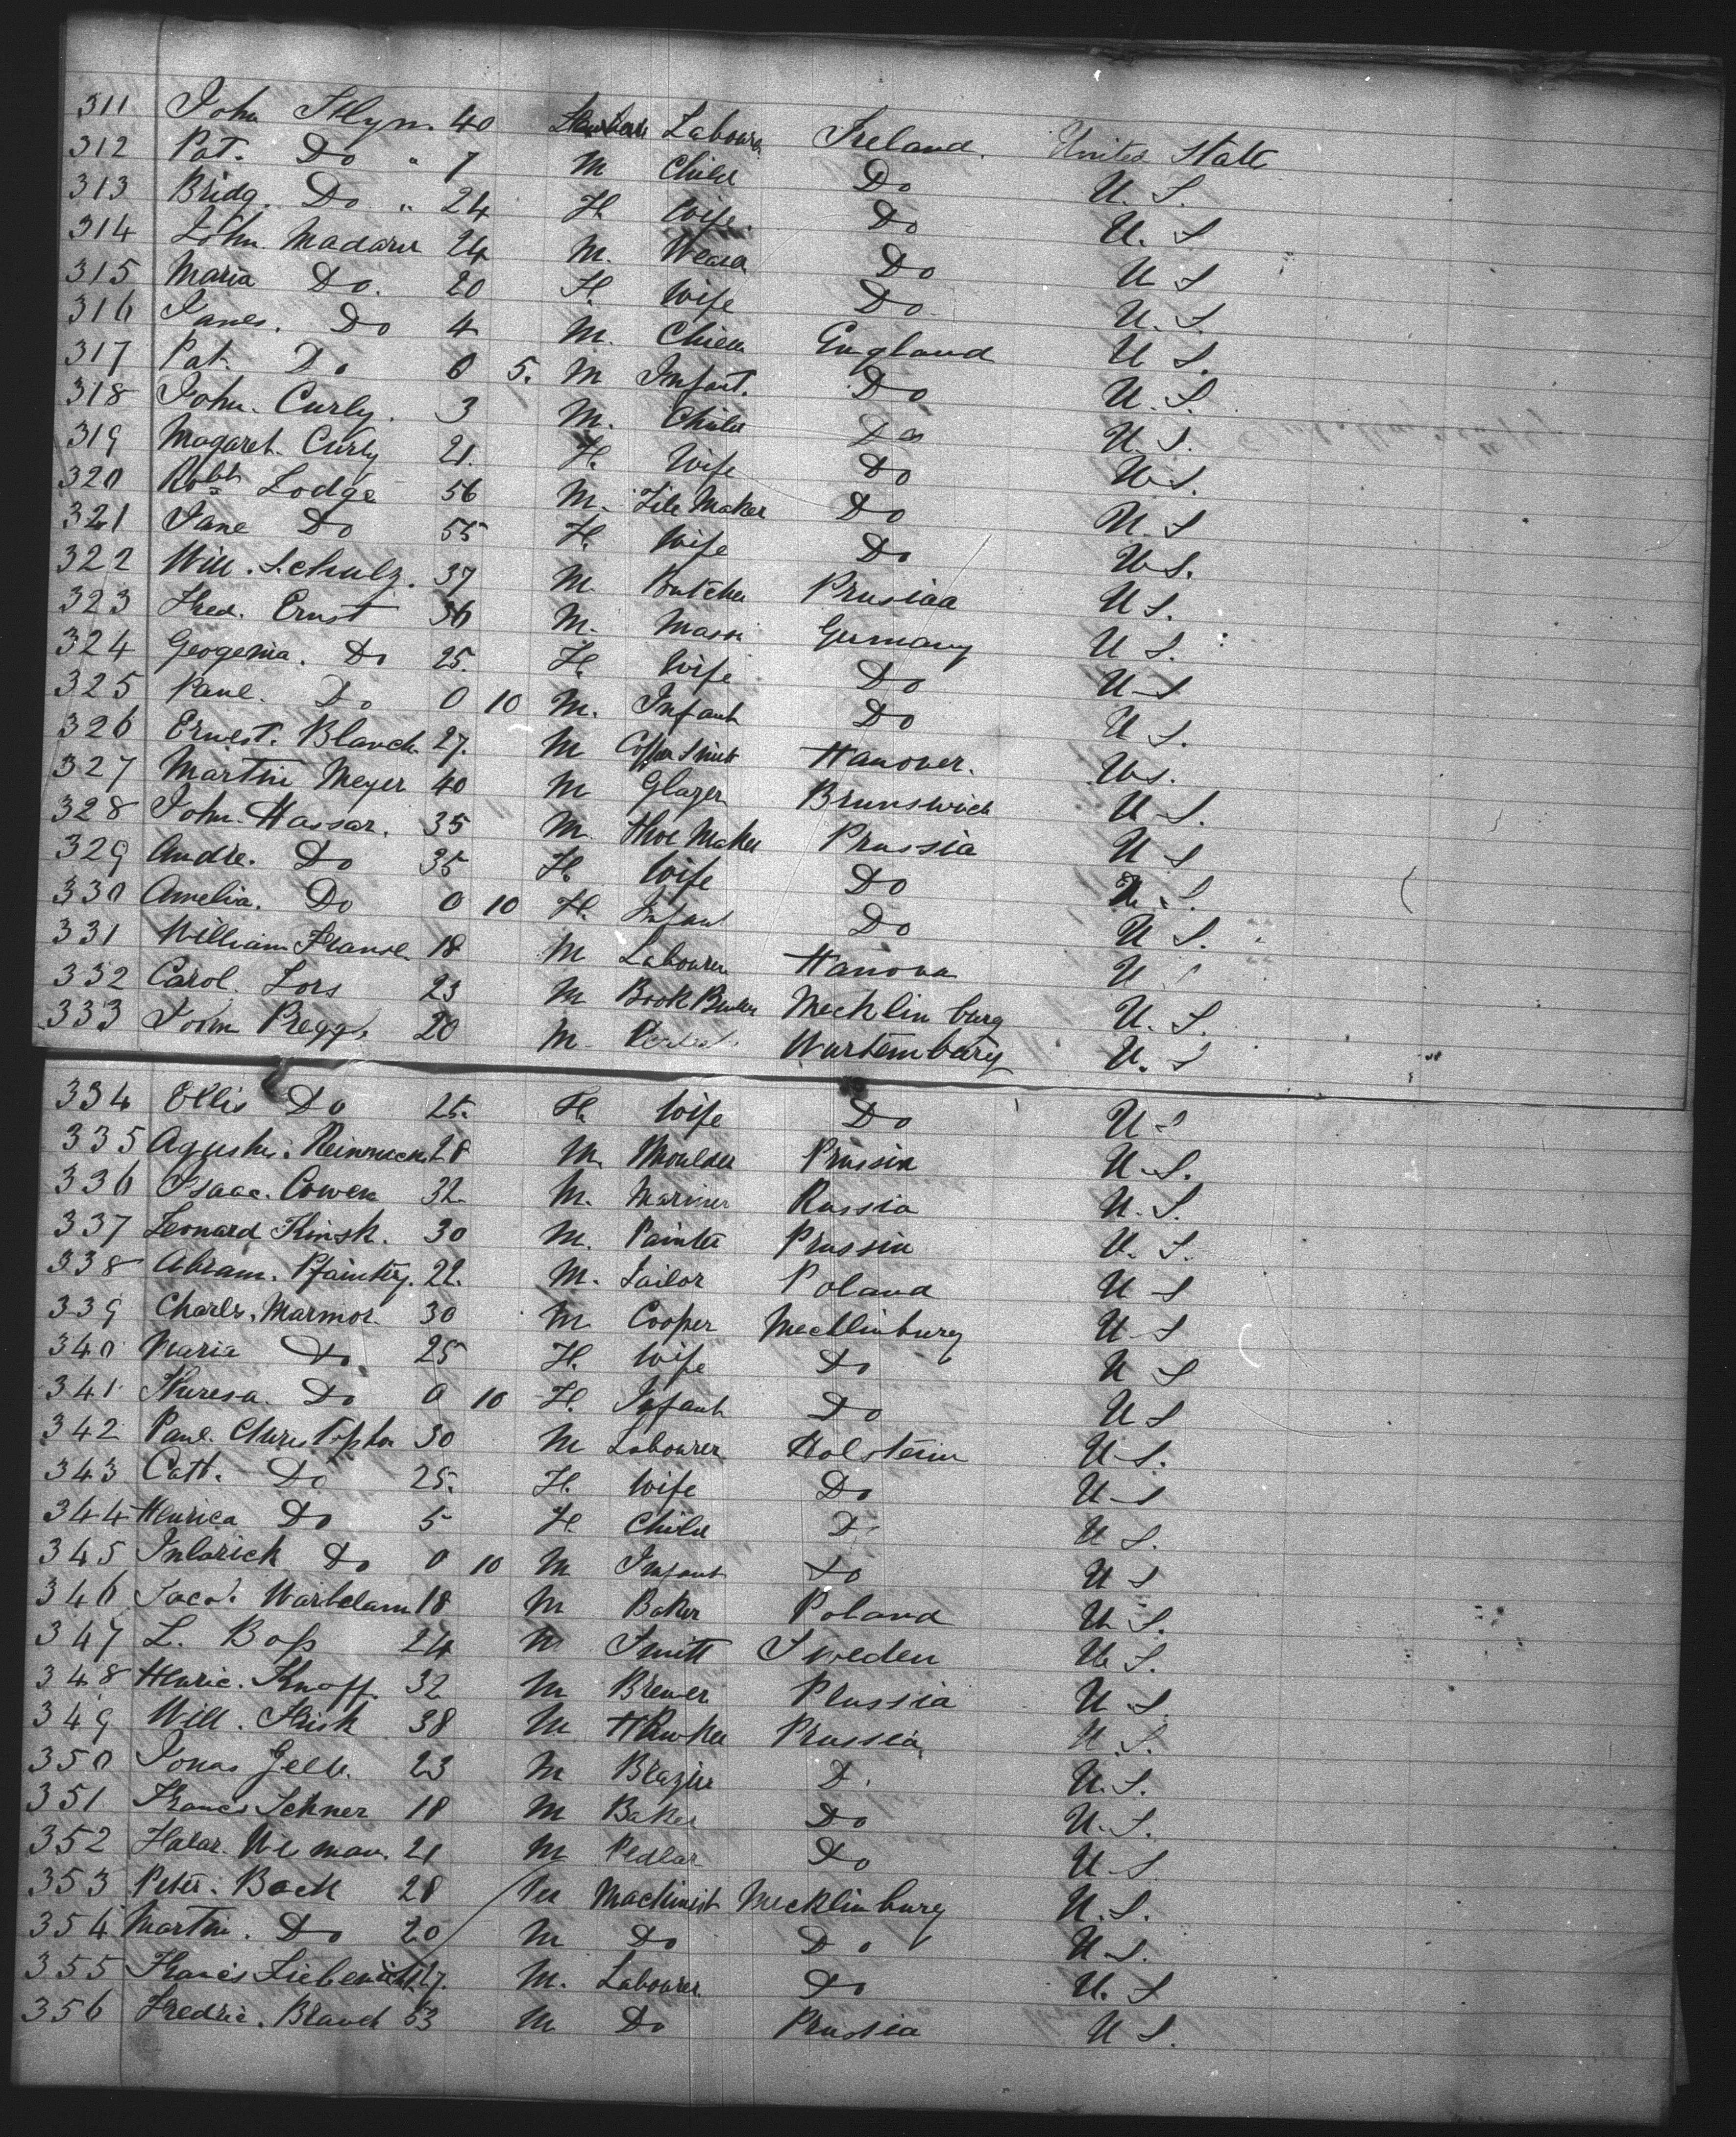 311 John Flyn. 40 Labourer Ireland. United State
312 Pat. Do " 7 M Child Do U. S.
313 Bridg. Do " 24 F. Wife. Do U. S
314 John Madarn 24 M. Weaver Do U S
315 Maria Do. 20 F. Wife Do U. S.
316 James. Do 4 M. Child England U S.
317 Pat. Do 0 5. M Infant. Do U. S.
318 John. Curly. 3 M. Child Do U S.
319 Magaret. Curly 21. F. Wife Do U S.
320 Robt Lodge 56 M. Tile Maker Do U. S
321 Jane Do 55 F. Wife Do U S.
322 Will. Schulz. 37 M. Butcher Prusiaa U S.
323 Fred. Ernst 36 M. Mason Germany U S.
324 Geogenia. Do 25. F. Wife Do U S
325 Paul. Do 0 10 M. Infant Do U S.
326 Ernest. Blanch. 27. M Copper Smith Hanover. U S.
327 Martin Meyer 40 M Glazer Brunswick U S.
328 John. Hassar. 35 M. Shoe Maker Prussia U S
329 Andre. Do 35 F. Wife Do U. S.
330 Amelia. Do 0 10 F. Infant Do U S.
331 William 18 M Labourer Hanova U
332 Carol. Lors 23 M Book Mecklinburg U. S.
333 John Pregg 20 M Wurtemburg U. S
334 Ellis Do 25. F. Wife Do U S
335 28 M. Moulder Prussia U. S.
336 Isaac. Cowen 32 M. Mariner Russia U. S.
337 Leonard Kinsk. 30 M. Painter Prussia U. S.
338 Abram. 22. M. Tailor Poland U S
339 Charls. Marmor. 30 M Cooper Mecklinburg U S
340 Maria Do. 25 F. Wife Do U S
341 Theresa. Do 0 10 F. Infant Do U S
342 Paul. Christopher 30 M Labourer Holstein U S.
343 Cath. Do 25. F. Wife Do U S
344 Henrica Do 5 F. Child Do U S.
345 Do 0 10 M Infant Do U S
346 Jacob. Warbelam 18 M Baker Poland U S.
347 L. Boss 24 M Smitt Sweden U S.
348 Henric. Knoff. 32 M Brewer Plussia U S.
349 Will. Frish 38 M Hawker Prussia U. S.
350 Jonas Gelb. 23 M Brazier D. U. S.
351 Francs Schner 18 M Baker Do U. S.
352 21 M Pedlar Do U S
353 Peter. Bock 28 M Machinist Mecklinburg U. S.
354 Martin. Do 20 M Do Do U S.
355 Francis 27. M. Labourer Do U. S
356 Fredric. Brandt 53 M Do Prussia U S.